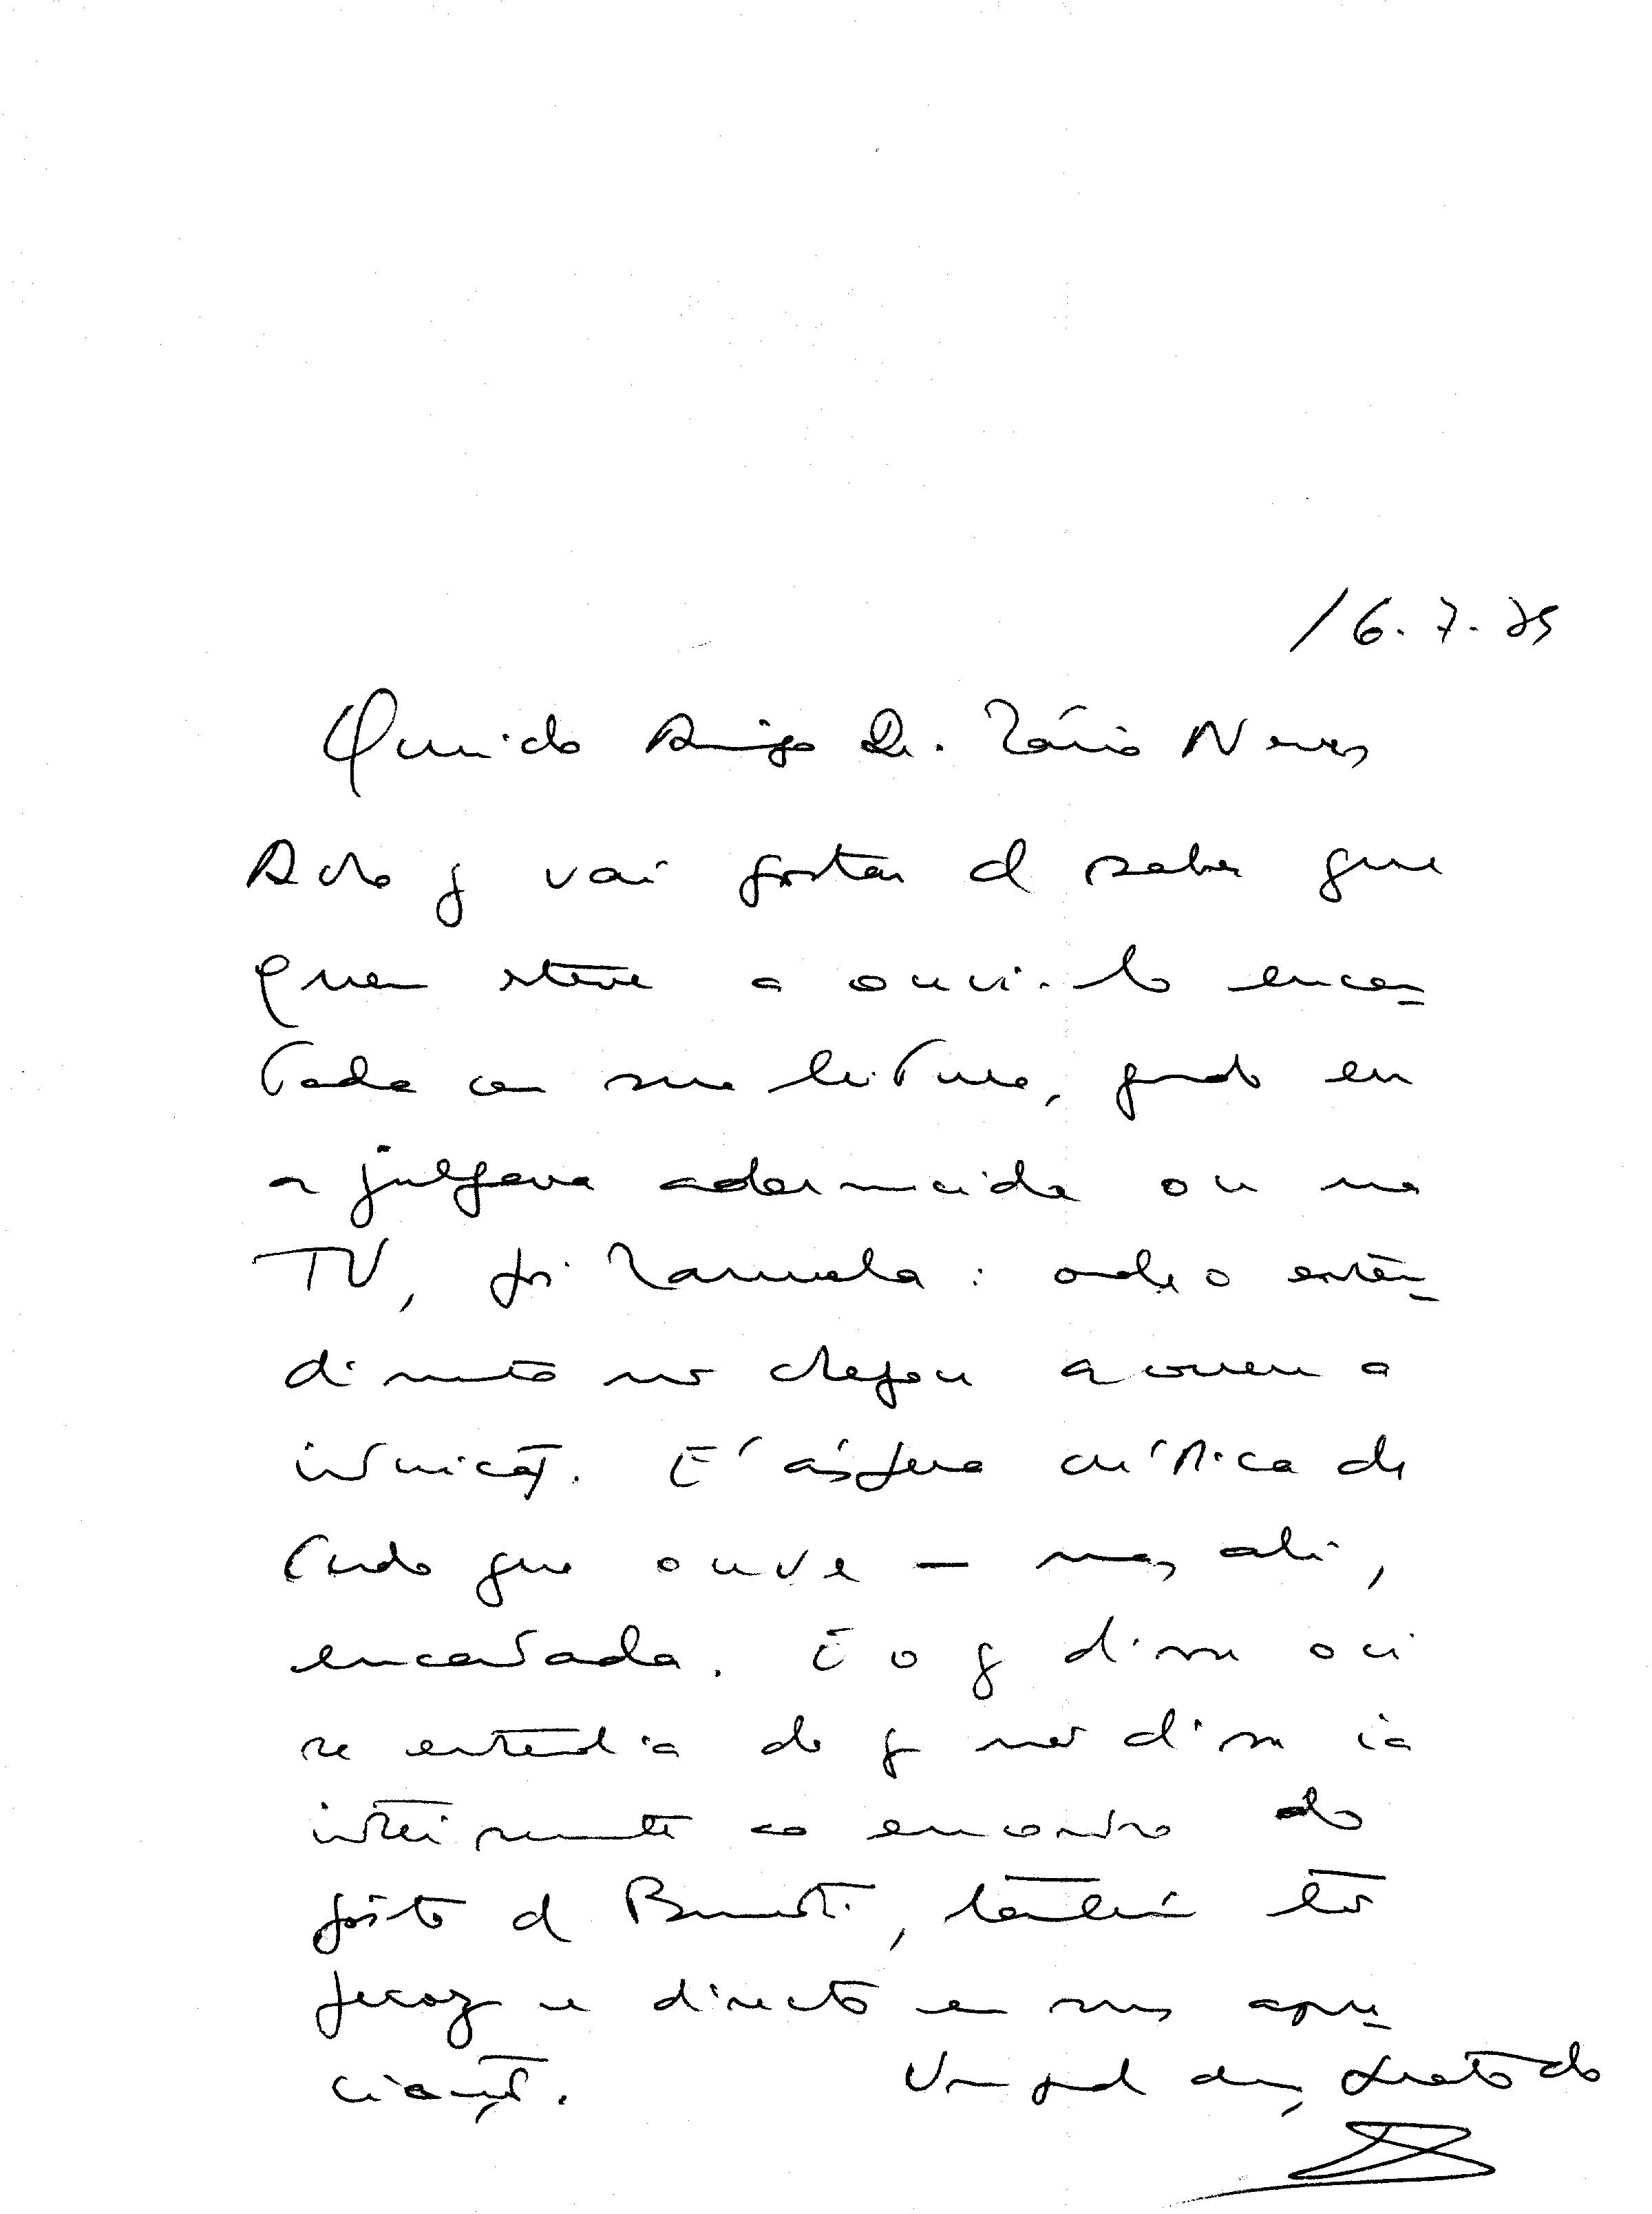 16.7.75
Querido Amigo Dr. Mário Neves
Acho q vai gostar d saber que
quem esteve a ouvi-lo encan-
tada com sua leitura, quando eu
a julgava adormecida ou na
TV, foi Manuela: onde o enten-
dimento não chegou acorreu a
intuição. É áspera crítica de
tudo que ouve — mas ali,
encantada. E o q disse ou
se entendia do q não disse ia
inteiramente ao encontro do
gosto d Benedito, também tão
e directo em suas apre-
ciações. Um grande abraço grato do